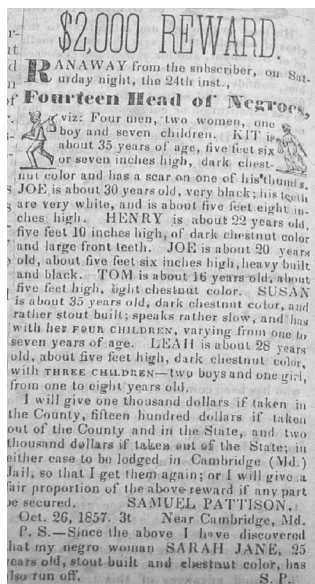 $2,000 REWARD.
RANAWAY from the subscriber, on Sat-
urday night, the 24th inst.,
Fourteen Head of Negroes,
viz: Four men, two women, one
boy and seven children. KIT is
about 35 years of age, five feet six
or seven inches high, dark chest-
nut color and has a scar on one of his thumbs.
JOE is about 30 years old, very black; his teeth
are very white, and is about five feet eight in-
ches high. HENRY is about 22 years old,
five feet 10 inches high, of dark chestnut color
and large front teeth. JOE is about 20 years
old, about five feet six inches high, heavy built
and black. TOM is about 16 years old, about
five feet high, light chestnut color. SUSAN
is about 35 years old, dark chestnut color, and
rather stout built; speaks rather slow, and has
with her FOUR CHILDREN, varying from one to
seven years of age. LEAH is about 28 years
old, about five feet high, dark chestnut color,
with THREE CHILDREN—two boys and one girl,
from one to eight years old.
I will give one thousand dollars if taken in
the County, fifteen hundred dollars if taken
out of the County and in the State, and two
thousand dollars if taken out of the State; in
either case to be lodged in Cambridge (Md.)
Jail, so that I get them again; or I will give a
fair proportion of the above reward if any part
be secured. SAMUEL PATTISON,
Oct. 26, 1857. 3t Near Cambridge, Md.
P. S.—Since the above I have discovered
that my negro woman SARAH JANE, 25
years old, stout built and chestnut color, has
also run off. S. P.